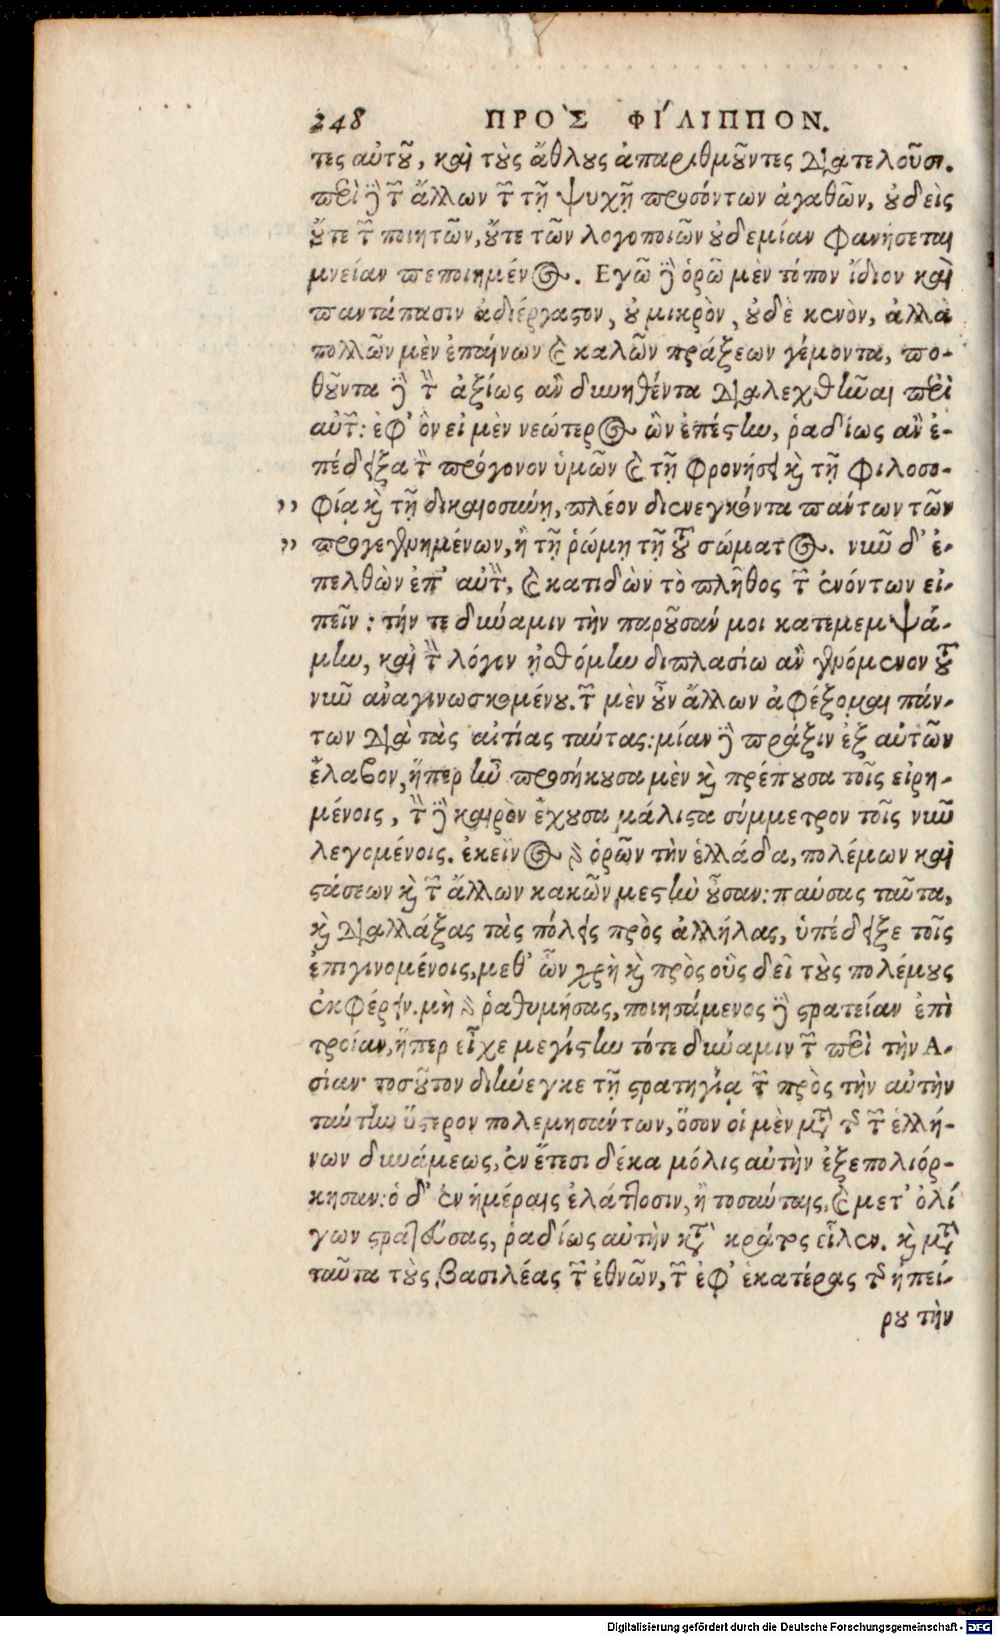 248 ΠΡΟ`Σ ΦΙ´ΛΙΠΠΟΝ.
τες αὐτοῦ, καὶ τοὺς ἄθλους ἀπαριθμοῦντες διατελοῦσι.
περὶ δὲ τῶν ἄλλων τῶν τῇ ψυχῇ προσόντων ἀγαθῶν, οὐδεὶς
οὔτε τῶν ποιητῶν, οὔτε τῶν λογοποιῶν οὐδεμίαν φανήσεται
μνείαν πεποιημένος. Εγὼ δὲ ὁρῶ μὲν τόπον ἴδιον καὶ
παντάπασιν ἀδιέργαστον, οὐ μικρὸν, οὐδὲ κενὸν, ἀλλὰ
πολλῶν μὲν ἐπαίνων καὶ καλῶν πράξεων γέμοντα, πο-
θοῦντα δὲ τὸν ἀξίως ἂν δυνηθέντα διαλεχθῆναι περὶ
αὐτῶν: ἐφ' ὃν εἰ μὲν νεώτερος ὢν ἐπέστην, ῥαδίως ἂν ἐ-
πέδειξα τὸν πρόγονον ὑμῶν καὶ τῇ φρονήσει καὶ τῇ φιλοσο-
„ φίᾳ καὶ τῇ δικαιοσύνῃ, πλέον διενεγκόντα πάντων τῶν
„ προγεγενημένων, ἢ τῇ ῥώμῃ τῇ τοῦ σώματος. νῦν δ' ἐ-
πελθὼν ἐπ' αὐτὸν, καὶ κατιδὼν τὸ πλῆθος τῶν ἐνόντων εἰ-
πεῖν: τήν τε δύναμιν τὴν παροῦσάν μοι κατεμεμψά-
μην, καὶ τὸν λόγον ᾐσθόμην διπλασίω ἂν γενόμενον τοῦ
νῦν ἀναγινωσκομένου. τῶν μὲν οὖν ἄλλων ἀφέξομαι πάν-
των διὰ τὰς αἰτίας ταύτας: μίαν δὲ πρᾶξιν ἐξ αὐτῶν
ἔλαβον, ἥπερ ἦν προσήκουσα μὲν καὶ πρέπουσα τοῖς εἰρη-
μένοις, τὸν δὲ καιρὸν ἔχουσα μάλιστα σύμμετρον τοῖς νῦν
λεγομένοις. ἐκεῖνος γὰρ ὁρῶν τὴν ἑλλάδα, πολέμων καὶ
στάσεων καὶ τῶν ἄλλων κακῶν μεστὴν οὖσαν: παύσας ταῦτα,
καὶ διαλλάξας τὰς πόλεις πρὸς ἀλλήλας, ὑπέδειξε τοῖς
ἐπιγινομένοις, μεθ' ὧν χρὴ καὶ πρὸς οὓς δεῖ τοὺς πολέμους
ἐκφέρειν. μὴ γὰρ ῥαθυμήσας, ποιησάμενος δὲ στρατείαν ἐπὶ
τροίαν, ἥπερ εἶχε μεγίστην τότε δύναμιν τῶν περὶ τὴν Α-
σίαν· τοσοῦτον διήνεγκε τῇ στρατηγίᾳ τῶν πρὸς τὴν αὐτὴν
ταύτην ὕστερον πολεμησάντων, ὅσον οἱ μὲν μετὰ τῆς τῶν ἑλλή-
νων δυνάμεως, ἐν ἔτεσι δέκα μόλις αὐτὴν ἐξεπολιόρ-
κησαν: ὁ δ' ἐν ἡμέραις ἐλάττοσιν, ἢ τοσαύταις, καὶ μετ' ὀλί
γων στρατεύσας, ῥαδίως αὐτὴν κατὰ κράτος εἷλεν. καὶ μετὰ
ταῦτα τοὺς βασιλέας τῶν ἐθνῶν, τῶν ἐφ' ἑκατέρας τῆς ἠπεί-
ρου τὴν
Digitalisierung gefördert durch die Deutsche Forschungsgemeinschaft - DFG